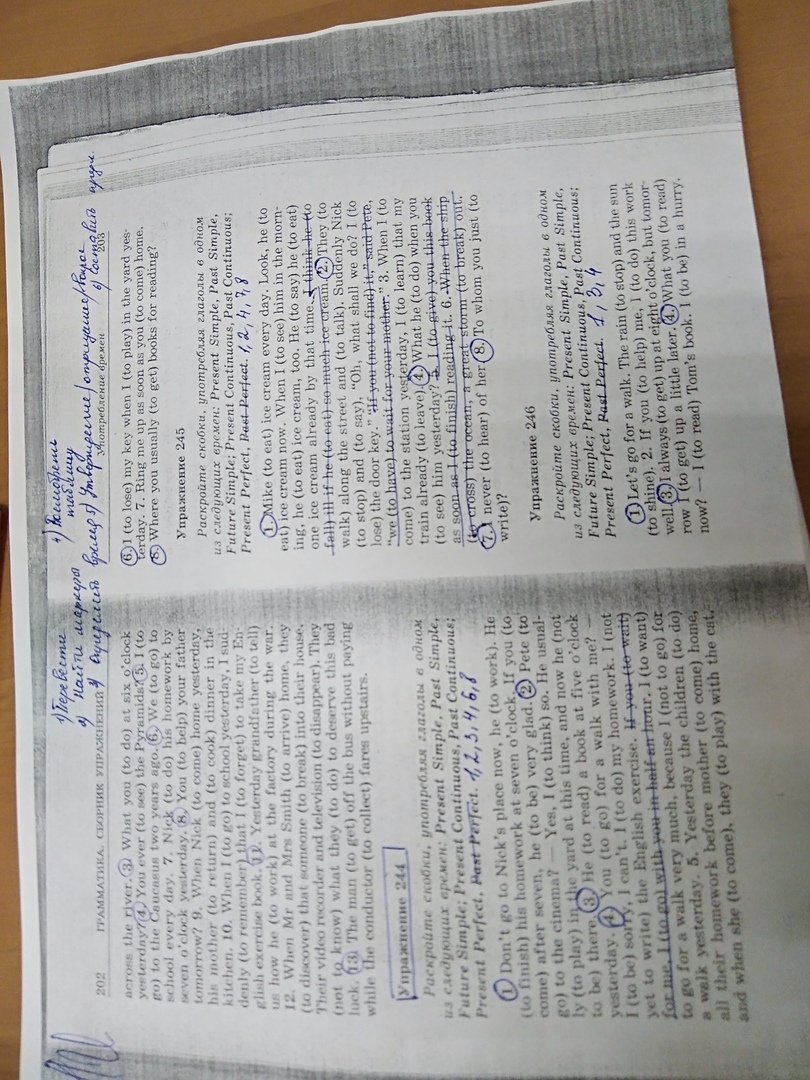 1) Перевести
2) Найти маркеры
3) Определить время
4) Разобрать таблицу
5) Утверждение/отрицание/вопрос
6) Составить
202 ГРАММАТИКА. СБОРНИК УПРАЖНЕНИЙ
across the river. 3. What you (to do) at six o'clock
yesterday? 4. You ever (to see) the Pyramids? 5. I (to
go) to the Caucasus two years ago. 6. We (to go) to
school every day. 7. Nick (to do) his homework by
seven o'clock yesterday. 8. You (to help) your father
tomorrow? 9. When Nick (to come) home yesterday,
his mother (to return) and (to cook) dinner in the
kitchen. 10. When I (to go) to school yesterday, I sud-
denly (to remember) that I (to forget) to take my En-
glish exercise book. 11. Yesterday grandfather (to tell)
us how he (to work) at the factory during the war.
12. When Mr and Mrs Smith (to arrive) home, they
(to discover) that someone (to break) into their house.
Their video recorder and television (to disappear). They
(not to know) what they (to do) to deserve this bad
luck. 13. The man (to get) off the bus without paying
while the conductor (to collect) fares upstairs.
Упражнение 244
Раскройте скобки, употребляя глаголы в одном
из следующих времен: Present Simple, Past Simple,
Future Simple; Present Continuous, Past Continuous;
Present Perfect, Past Perfect. 1, 2, 3, 4, 6, 8
1. Don't go to Nick's place now, he (to work). He
(to finish) his homework at seven o'clock. If you (to
come) after seven, he (to be) very glad. 2. Pete (to
go) to the cinema? — Yes, I (to think) so. He usual-
ly (to play) in the yard at this time, and now he (not
to be) there. 3. He (to read) a book at five o'clock
yesterday. 4. You (to go) for a walk with me? —
I (to be) sorry, I can't. I (to do) my homework. I (not
yet to write) the English exercise. If you (to wait)
for me, I (to go) with you in half an hour. I (to want)
to go for a walk very much, because I (not to go) for
a walk yesterday. 5. Yesterday the children (to do)
all their homework before mother (to come) home,
and when she (to come), they (to play) with the cat.
употребление времен 203
6. I (to lose) my key when I (to play) in the yard yes-
terday. 7. Ring me up as soon as you (to come) home.
8. Where you usually (to get) books for reading?
Упражнение 245
Раскройте скобки, употребляя глаголы в одном
из следующих времен: Present Simple, Past Simple,
Future Simple; Present Continuous, Past Continuous;
Present Perfect, Past Perfect. 1, 2, 4, 7, 8
1. Mike (to eat) ice cream every day. Look, he (to
eat) ice cream now. When I (to see) him in the morn-
ing, he (to eat) ice cream, too. He (to say) he (to eat)
one ice cream already by that time. I think he (to
fall) ill if he (to eat) so much ice cream. 2. They (to
walk) along the street and (to talk). Suddenly Nick
(to stop) and (to say), "Oh, what shall we do? I (to
lose) the door key." "If you (not to find) it," said Pete,
"we (to have) to wait for your mother." 3. When I (to
come) to the station yesterday, I (to learn) that my
train already (to leave). 4. What he (to do) when you
(to see) him yesterday? 5. I (to give) you this book
as soon as I (to finish) reading it. 6. When the ship
(to cross) the ocean, a great storm (to break) out.
7. I never (to hear) of her. 8. To whom you just (to
write)?
Упражнение 246
Раскройте скобки, употребляя глаголы в одном
из следующих времен: Present Simple, Past Simple,
Future Simple; Present Continuous, Past Continuous;
Present Perfect, Past Perfect. 1, 3, 4
1. Let's go for a walk. The rain (to stop) and the sun
(to shine). 2. If you (to help) me, I (to do) this work
well. 3. I always (to get) up at eight o'clock, but tomor-
row I (to get) up a little later. 4. What you (to read)
now? — I (to read) Tom's book. I (to be) in a hurry.